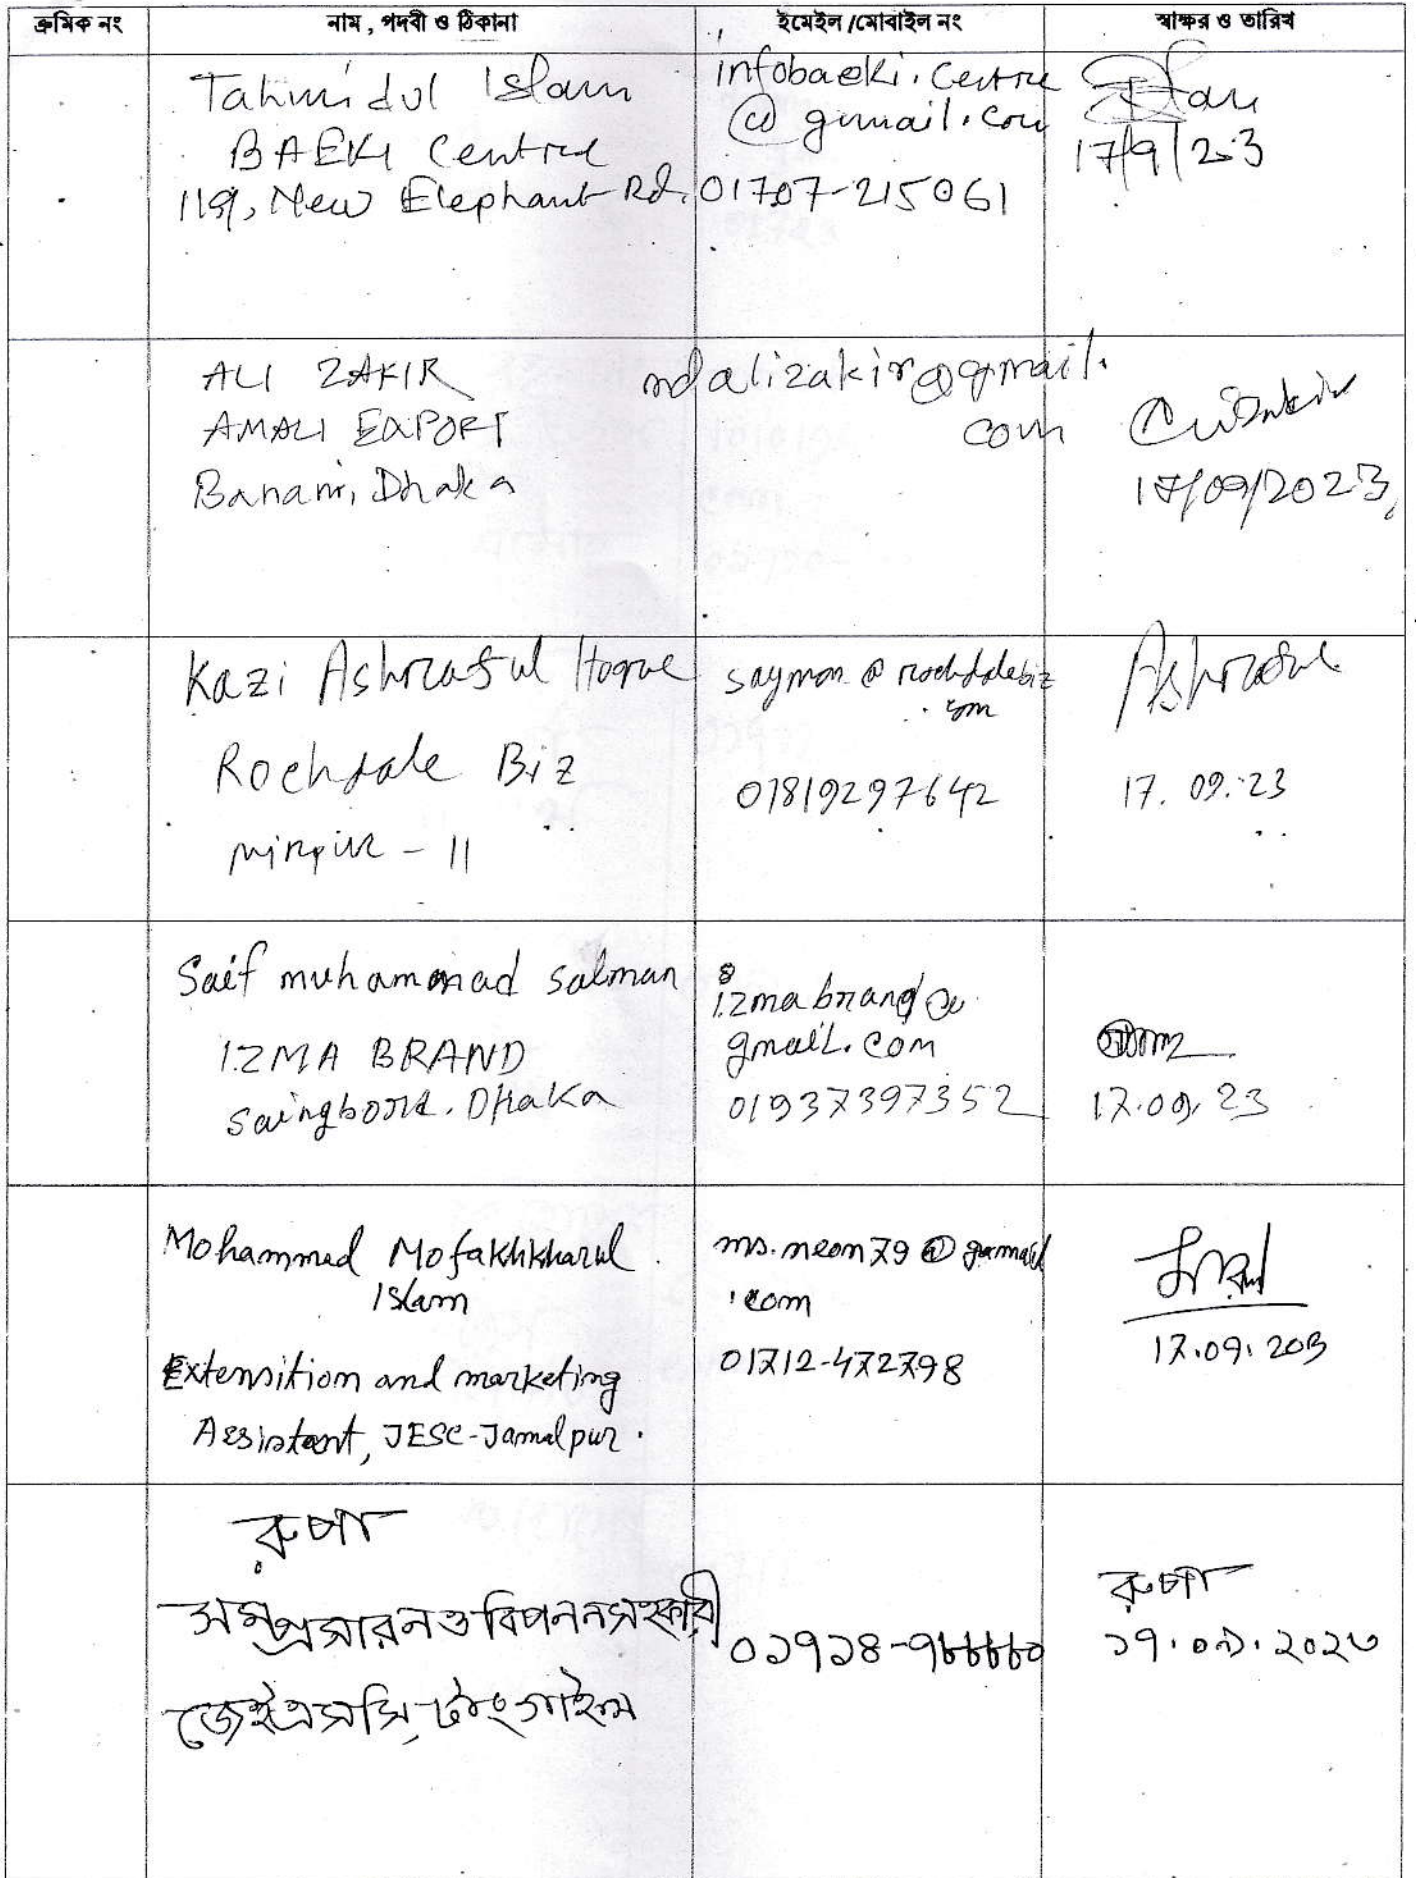 ক্রমিক নং নাম, পদবী ও ঠিকানা ইমেইল /মোবাইল নং স্বাক্ষর ও তারিখ
Tahmidul Islam
BAEKI Centre
119, New Elephant Rd,
infobaeki.centre
@gmail.com
01707-215061
17/9/23
ALI ZAKIR
AMALI EXPORT
Banani, Dhaka
mdalizakir@gmail.
com
17/09/2023
Kazi Ashraful Hoque
Rochdale Biz
Mirpur - 11
saymon@rochdalebiz
.com
01819297642
Ashraful
17.09.23
Saif muhammad Salman
IZMA BRAND
Saingbord. Dhaka
izmabrand@
gmail.com
01937397352
17.09.23
Mohammed Mofakhkharul
Islam
Extensition and marketing
Assistant, JESC-Jamalpur.
ms.neon79@gamail
.com
01712-472798
17.09.203
রুপা
সম্প্রসারন ও বিপনন সহকারী
জেইএসসি, টাংগাইল
০১৭১৪-৭৮৮৮৮০
রুপা
১৭.০৯.২০২৩